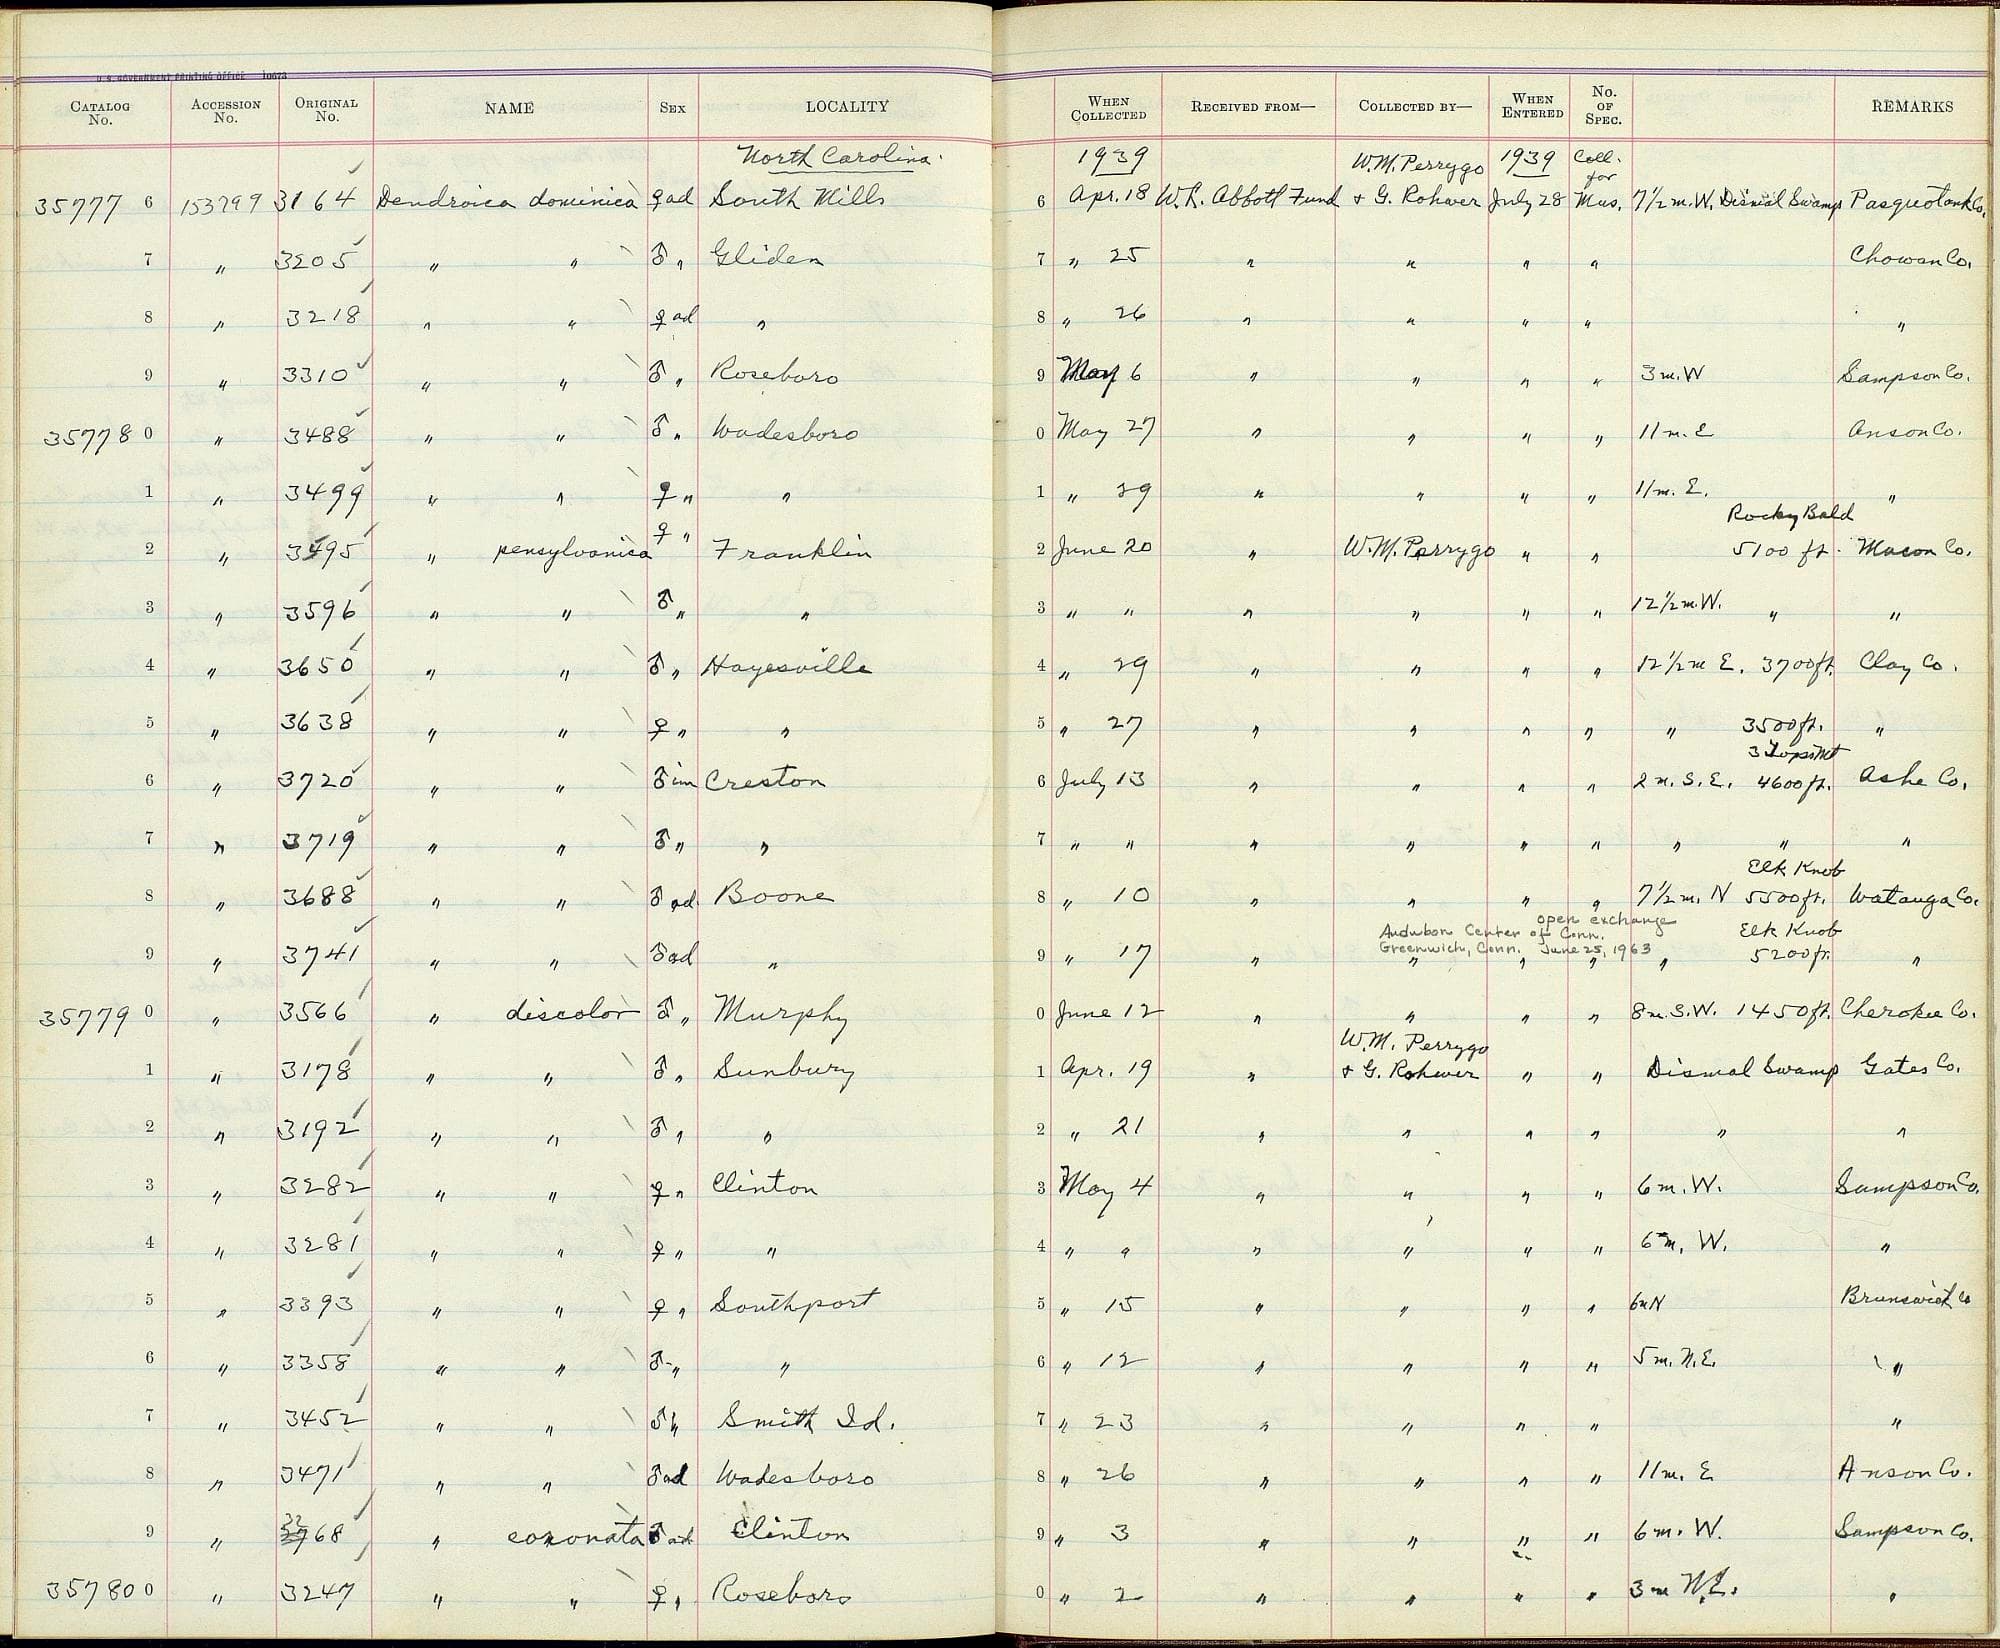 U. S. GOVERNMENT PRINTING OFFICE 10673
CATALOG No. ACCESSION No. ORIGINAL No. NAME SEX LOCALITY WHEN COLLECTED RECEIVED FROM— COLLECTED BY— WHEN ENTERED No. OF SPEC. REMARKS
North Carolina 1939 W.M. Perrygo 1939 Coll. for
35777 6 153799 3164 Dendroica dominica ♀ ad South Mills 6 Apr. 18 W. L. Abbott Fund + G. Rohwer July 28 Mus. 7 1/2 m. W. Dismal Swamp Pasquotank Co.
7 " 3205 " " ♂ " Gliden 7 " 25 " " " " Chowan Co.
8 " 3218 " " ♀ ad " 8 " 26 " " " " "
9 " 3310 " " ♂ " Roseboro 9 May 6 " " " " 3 m. W Sampson Co.
35778 0 " 3488 " " ♂ " Wadesboro 0 May 27 " " " " 11 m. E Anson Co.
1 " 3499 " " ♀ " " 1 " 29 " " " " 11 m. E. "
Rocky Bald
2 " 3595 " pensylvanica ♀ " Franklin 2 June 20 " W.M. Perrygo " " 5100 ft. Macon Co.
3 " 3596 " " ♂ " " 3 " " " " " " 12 1/2 m. W. " "
4 " 3650 " " ♂ " Hayesville 4 " 29 " " " " 12 1/2 m E. 3700 ft. Clay Co.
5 " 3638 " " ♀ " " 5 " 27 " " " " " 3500 ft. "
3 Tops Mt
6 " 3720 " " ♂ im Creston 6 July 13 " " " " 2 m. S.E. 4600 ft. Ashe Co.
7 " 3719 " " ♂ " " 7 " " " " " " " " "
Elk Knob
8 " 3688 " " ♂ ad Boone 8 " 10 " " " " 7 1/2 m. N 5500 ft. Watauga Co.
open exchange
Audubon Center of Conn. Elk Knob
Greenwich, Conn. June 25, 1963
9 " 3741 " " ♂ ad " 9 " 17 " " " " " 5200 ft. "
35779 0 " 3566 " discolor ♂ " Murphy 0 June 12 " " " " 8 m. S.W. 1450 ft. Cherokee Co.
W.M. Perrygo
1 " 3178 " " ♂ " Sunbury 1 Apr. 19 " + G. Rohwer " " Dismal Swamp Gates Co.
2 " 3192 " " ♂ " " 2 " 21 " " " " " "
3 " 3282 " " ♀ " Clinton 3 May 4 " " " " 6 m. W. Sampson Co.
4 " 3281 " " ♀ " " 4 " " " " " " 6 m. W. "
5 " 3393 " " ♀ " Southport 5 " 15 " " " " 6 m N Brunswick Co
6 " 3358 " " ♂ " " 6 " 12 " " " " 5 m. N.E. "
7 " 3452 " " ♂ " Smith Id. 7 " 23 " " " " "
8 " 3471 " " ♂ ad Wadesboro 8 " 26 " " " " 11 m. E Anson Co.
9 " 3268 " coronata ♂ ad Clinton 9 " 3 " " " " 6 m. W. Sampson Co.
35780 0 " 3247 " " ♀ " Roseboro 0 " 2 " " " " 3 m N.E. "